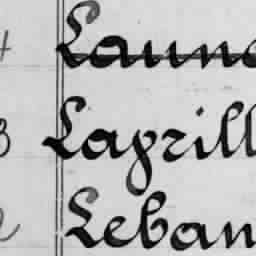 4 Laun
3 Laprill
Leban